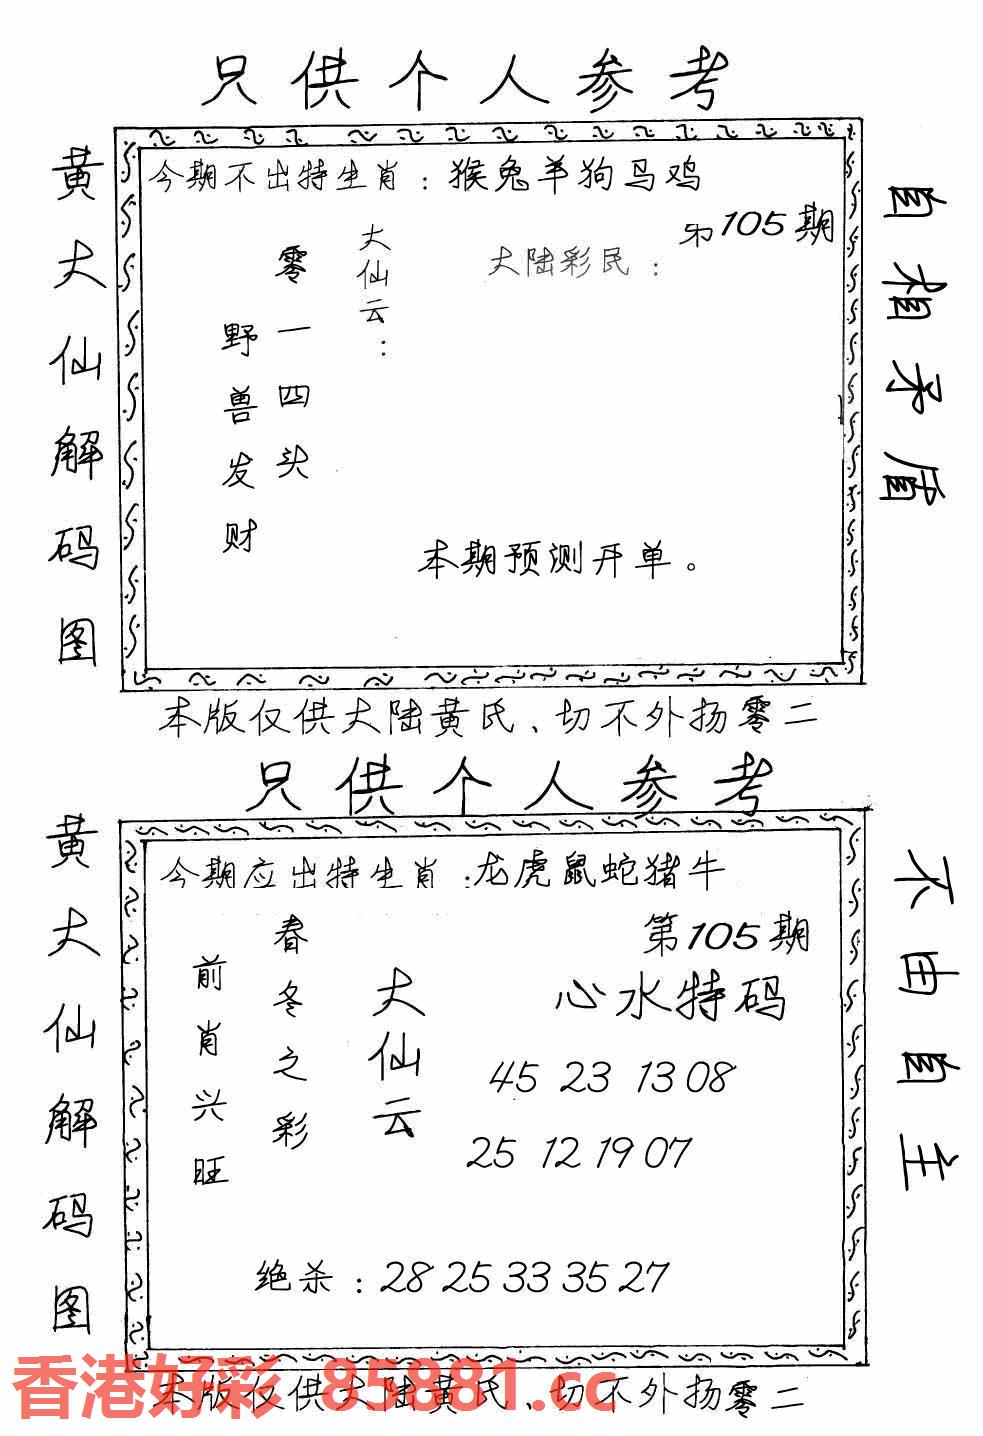 只供个人参考
黄大仙解码图
今期不出特生肖：猴兔羊狗马鸡
105期
大陆彩民：
大仙云：
零一四头
野兽发财
本期预测开单。
自相矛盾
本版仅供大陆黄氏、切不外扬零二
只供个人参考
黄大仙解码图
今期应出特生肖：龙虎鼠蛇猪牛
第105期
心水特码
大仙云
春冬之彩
前肖兴旺
45 23 13 08
25 12 19 07
绝杀：28 25 33 35 27
不由自主
香港好彩 85881.cc
本版仅供大陆黄氏、切不外扬零二